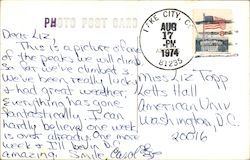 PHOTO POST CARD
LAKE CITY, C
AUG
17
PM
1974
81235
Dear Liz,
This is a picture of one
of the peaks we will climb.
So far we've climbed 5
We've been really lucky
& had great weather.
Everything has gone
fantastically. I can
hardly believe one week
is over already. One more
week & I'll be in D.C.
amazing. Smile, Carol
Miss Liz Topp
Letts Hall
American Univ
Washington, D.C.
20016